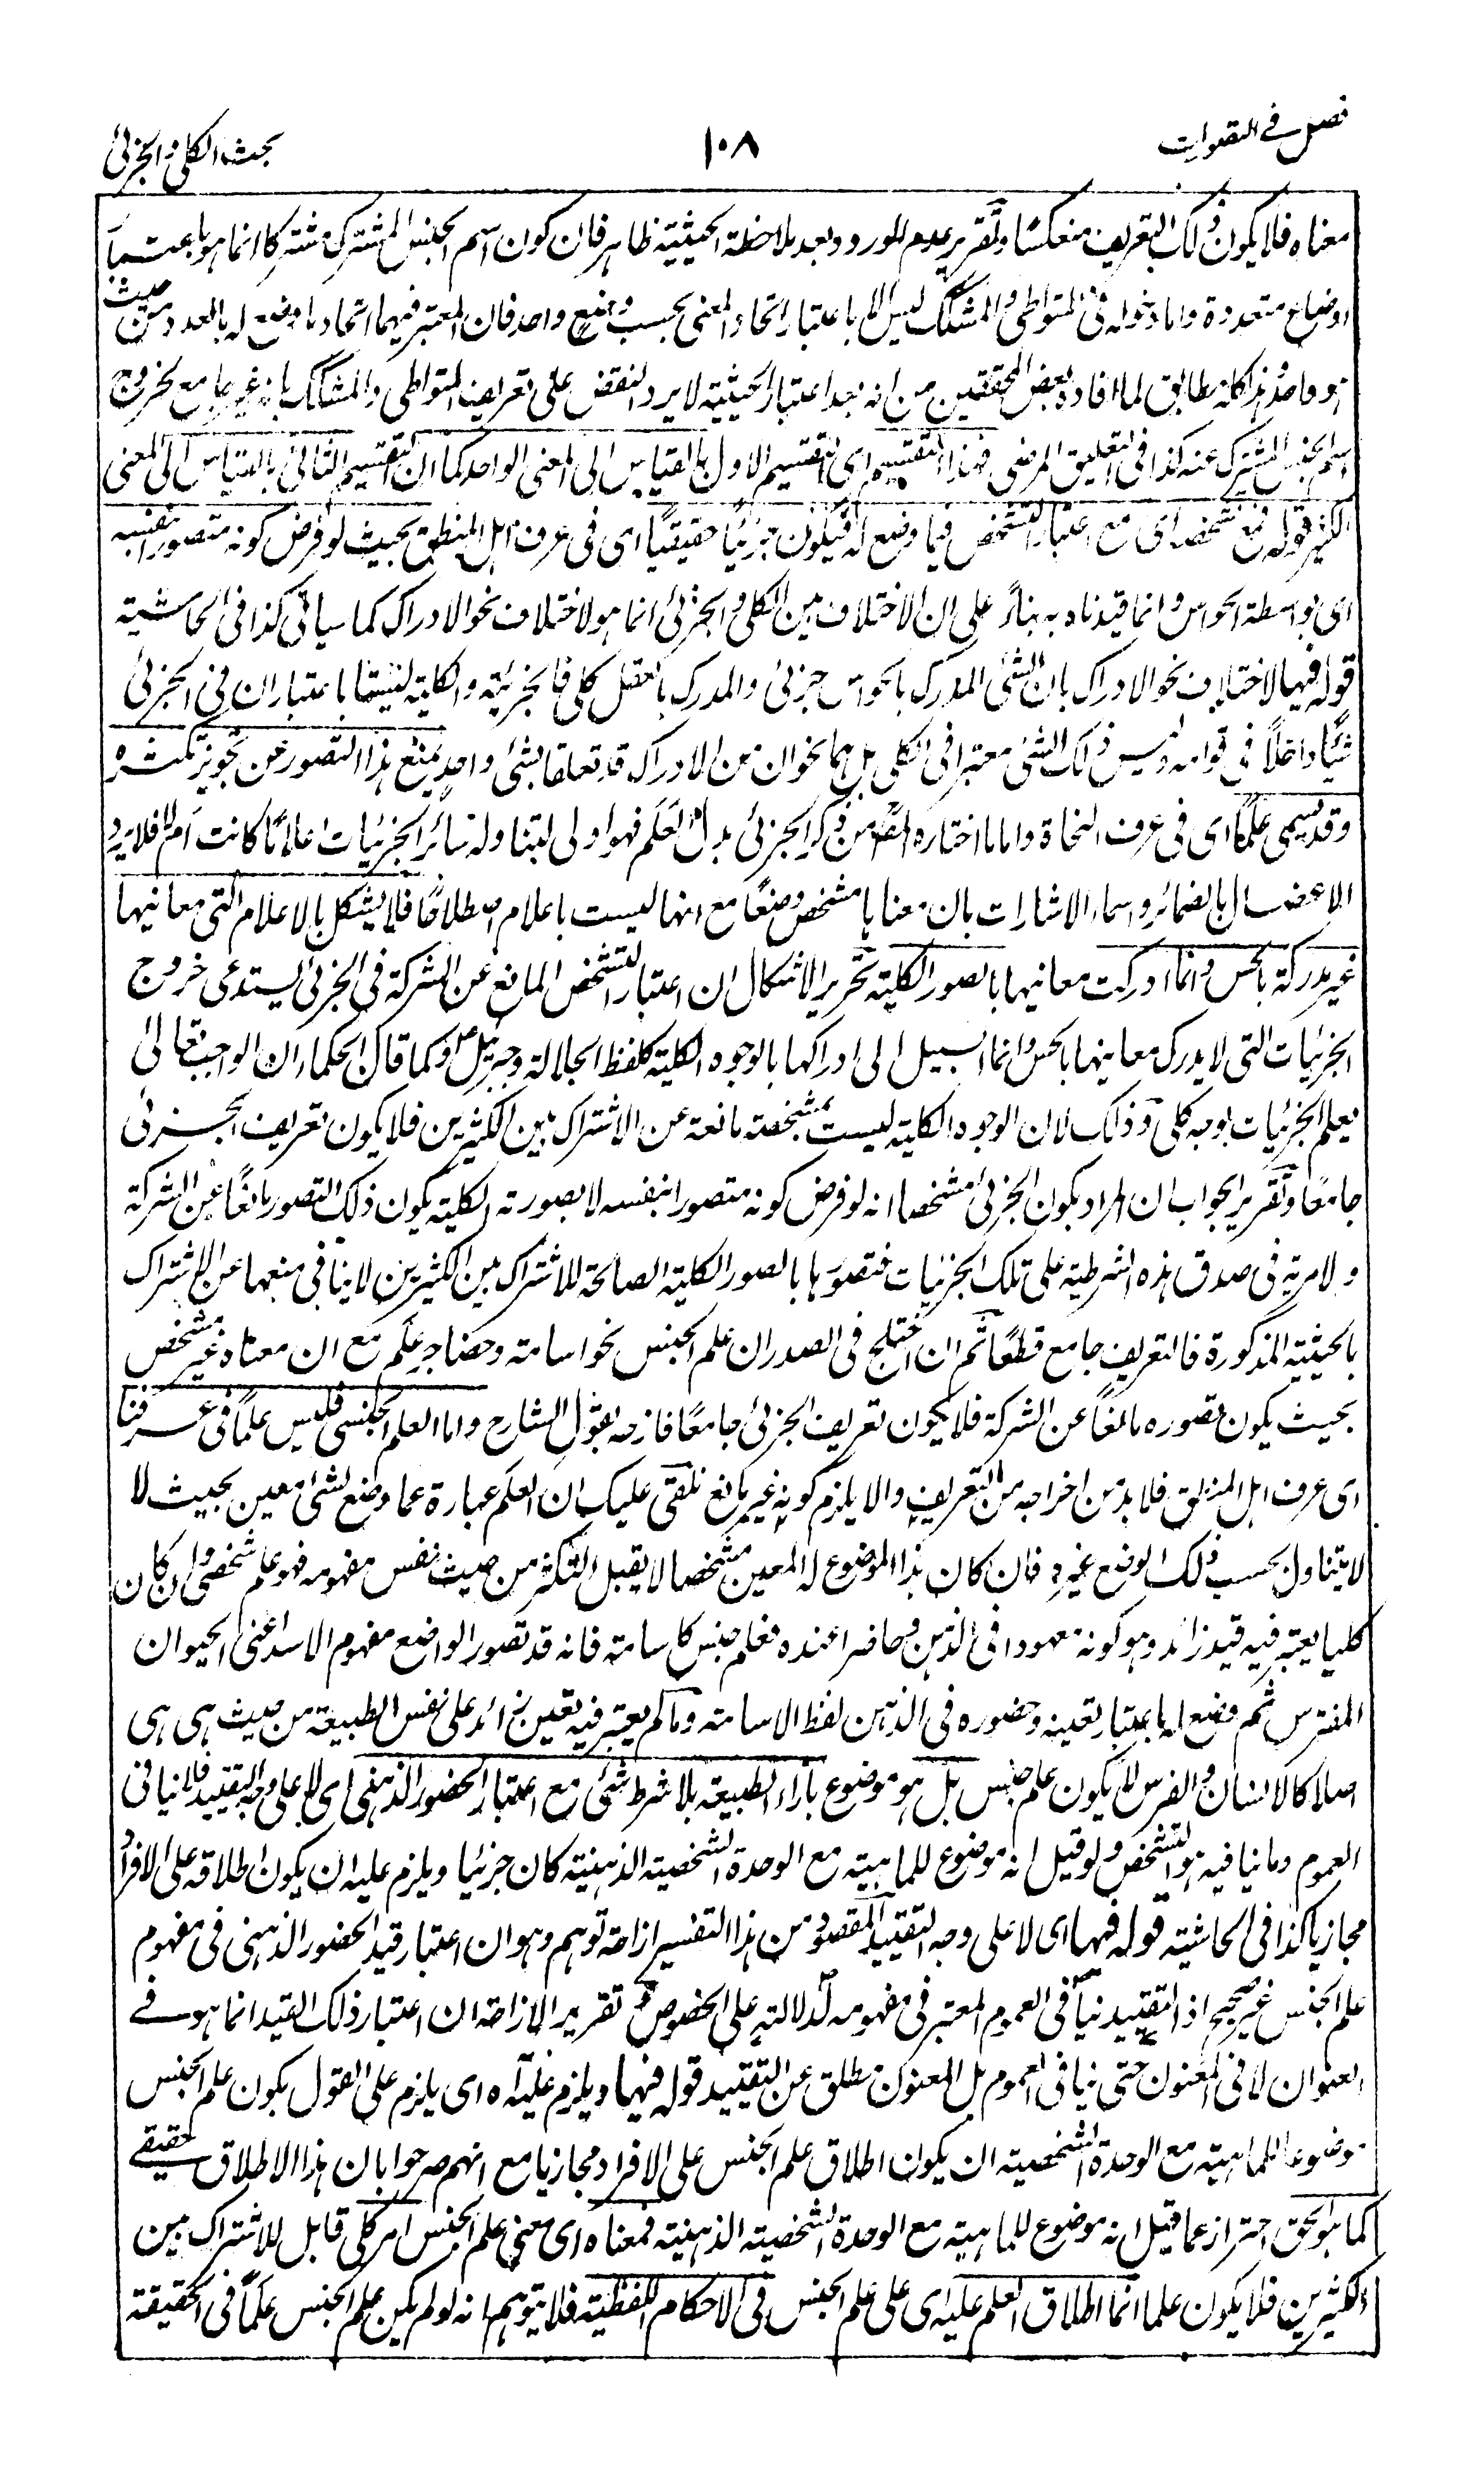 فصل في التصورات
١٠٨
بحث الكلي والجزئي
معناه فلا يكون ذلك التعريف منعكسًا وتقرير عدم الورود بعد ملاحظة الحيثية ظاهر فان كون اسم الجنس المشترك مشتركا انما هو باعتبار
اوضاع متعددة واما دخوله في المتواطي والمشكك ليس الا باعتبار اتحاد المعنى بحسب وضع واحد فان المعتبر فيهما اتحاد ما وضع له بالعدد من حيث
هو واحد هذا كله مطابق لما افاده بعض المحققين من انه بعد اعتبار الحيثية لا يرد النقض على تعريف المتواطي والمشكك بانه غير جامع لخروج
اسم الجنس المشترك عنه كذا في التعليق المرضي فهذا التقسيم اى التقسيم الاول بالقياس الى المعنى الواحد كما ان التقسيم الثاني بالقياس الى المعنى
الكثير قوله فمع تشخصه اى مع اعتبار التشخص فيما وضع له فيكون جزئيًا حقيقيًا اى في عرف اهل المنطق بحيث لو فرض كونه متصورا بنفسه
اى بواسطة الحواس وانما قيدناه به بناءً على ان الاختلاف بين الكلي والجزئي انما هو لاختلاف نحو الادراك كما سياتي كذا في الحاشية
قوله فيها لاختلاف نحو الادراك بان الشئ المدرك بالحواس جزئي والمدرك بالعقل كلي فالجزئية والكلية ليستا باعتبار ان في الجزئي
شيئًا داخلًا في قوامه وليس ذلك الشئ معتبرا في الكلي بل هما نحوان من الادراك قد تعلقا بشئ واحد يمنع هذا التصور عن تجويز تكثره
وقد يسمى علمًا اى في عرف النحاة واما ما اختاره المصـ من ذكر الجزئي بدل العلم فهو اولى لتناوله سائر الجزئيات اعلامًا كانت ام لا فلا يرد
الاعضال بالضمائر واسماء الاشارات بان معناها مشخص وضعًا مع انها ليست باعلام اصطلاحًا فلا يشكل بالاعلام التي معانيها
غير مدركة بالحس وانما ادركت معانيها بالصور الكلية تحرير الاشكال ان اعتبار التشخص المانع عن الشركة في الجزئي يستدعى خروج
الجزئيات التي لا يدرك معانيها بالحس وانما السبيل الى ادراكها بالوجوه الكلية كلفظ الجلالة وجبرئيل وكما قال الحكماء ان الواجب تعالى
يعلم الجزئيات بوجه كلي وذلك لان الوجوه الكلية ليست بمشخصة مانعة عن الاشتراك بين الكثيرين فلا يكون تعريف الجزئي
جامعًا وتقرير الجواب ان المراد بكون الجزئي مشخصا انه لو فرض كونه متصورا بنفسه لا بصورته الكلية يكون ذلك التصور مانعًا عن الشركة
ولا مرية في صدق هذه الشرطية على تلك الجزئيات فتصورها بالصور الكلية الصالحة للاشتراك بين الكثيرين لا ينافي منعها عن الاشتراك
بالحيثية المذكورة فالتعريف جامع قطعًا ثم ان اختلج في الصدر ان علم الجنس نحو اسامة وحضاجر علم مع ان معناه غير مشخص
بحيث يكون تصوره مانعًا عن الشركة فلا يكون تعريف الجزئي جامعًا فازحه بقول الشارح واما العلم الجنسي فليس علمًا في عرفنا
اى عرف اهل المنطق فلا بد من اخراجه من التعريف والا يلزم كونه غير مانع نلقى عليك ان العلم عبارة عما وضع لشئ معين بحيث لا
لا يتناول بحسب ذلك الوضع غيره فان كان هذا الموضوع له المعين مشخصا لا يقبل التكثر من حيث نفس مفهومه فهو علم شخصي وان كان
كليا يعتبر فيه قيد زائد وهو كونه معهودا في الذهن وحاضرا عنده فعلم جنس كاسامة فانه قد تصور الواضع مفهوم الاسد اعنى الحيوان
المفترس ثم وضع له باعتبار تعينه وحضوره في الذهن لفظ الاسامة وما لم يعتبر فيه تعين زائد على نفس الطبيعة من حيث هى هى
اصلا كالانسان والفرس لا يكون علم جنس بل هو موضوع بازاء الطبيعة بلا شرط شئ مع اعتبار الحضور الذهني اى لا على وجه التقييد فلا ينافي
العموم وما ينافيه هو التشخص ولو قيل انه موضوع للماهية مع الوحدة الشخصية الذهنية كان جزئيا ويلزم عليه ان يكون اطلاقه على الافراد
مجازيا كذا في الحاشية قوله فيها اى لا على وجه التقييد المقصود من هذا التفسير ازاحة توهم وهو ان اعتبار قيد الحضور الذهني في مفهوم
علم الجنس غير صحيح اذ التقييد ينافي العموم المعتبر في مفهومه لدلالته على الخصوص تقرير الازاحة ان اعتبار ذلك القيد انما هو في
العنوان لا في المعنون حتى ينافي العموم بل المعنون مطلق عن التقييد قوله فيها ويلزم عليه اه اى يلزم على القول بكون علم الجنس
موضوعا للماهية مع الوحدة الشخصية ان يكون اطلاق علم الجنس على الافراد مجازيا مع انهم صرحوا بان هذا الاطلاق حقيقي
كما هو الحق احتراز عما قيل انه موضوع للماهية مع الوحدة الشخصية الذهنية فمعناه اى معنى علم الجنس امر كلي قابل للاشتراك بين
الكثيرين فلا يكون علما انما اطلاق العلم عليه اى على علم الجنس في الاحكام اللفظية فلا يتوهم انه لو لم يكن علم الجنس علمًا في الحقيقة